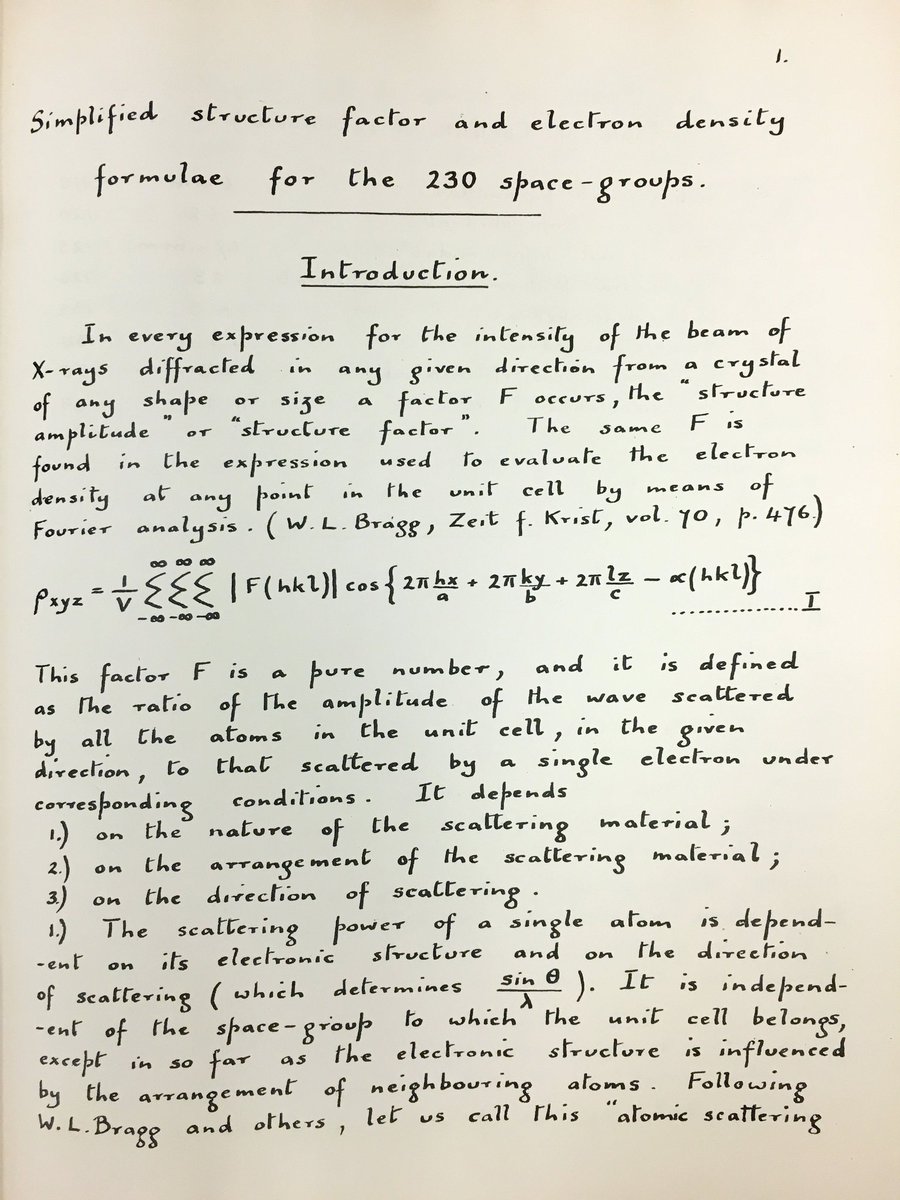 1.
Simplified structure factor and electron density
formulae for the 230 space-groups.
Introduction.
In every expression for the intensity of the beam of
X-rays diffracted in any given direction from a crystal
of any shape or size a factor F occurs, the "structure
amplitude" or "structure factor". The same F is
found in the expression used to evaluate the electron
density at any point in the unit cell by means of
Fourier analysis. (W. L. Bragg, Zeit f. Krist, vol. 70, p. 476.)
ρxyz = 1/V ∞∑-∞ ∞∑-∞ ∞∑-∞ |F(hkl)| cos{2π hx/a + 2π ky/b + 2π lz/c − α(hkl)} ............... I
This factor F is a pure number, and it is defined
as the ratio of the amplitude of the wave scattered
by all the atoms in the unit cell, in the given
direction, to that scattered by a single electron under
corresponding conditions. It depends
1.) on the nature of the scattering material;
2.) on the arrangement of the scattering material;
3.) on the direction of scattering.
1.) The scattering power of a single atom is depend-
-ent on its electronic structure and on the direction
of scattering (which determines sin θ/λ). It is independ-
-ent of the space-group to which the unit cell belongs,
except in so far as the electronic structure is influenced
by the arrangement of neighbouring atoms. Following
W. L. Bragg and others, let us call this "atomic scattering